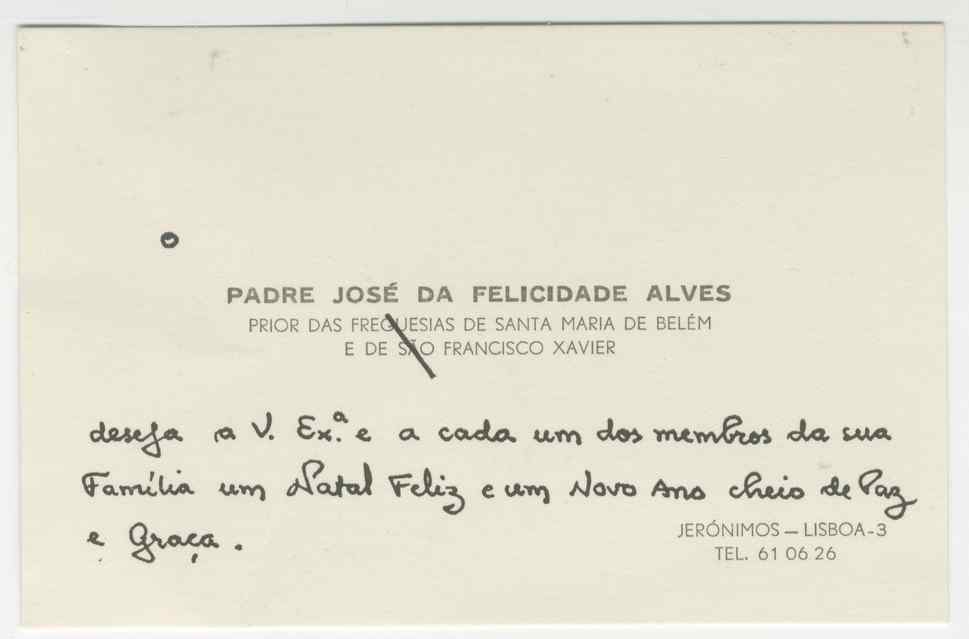 o
PADRE JOSÉ DA FELICIDADE ALVES
PRIOR DAS FREGUESIAS DE SANTA MARIA DE BELÉM
E DE SÃO FRANCISCO XAVIER
deseja a V. Ex.ª e a cada um dos membros da sua
Família um Natal Feliz e um Novo Ano cheio de Paz
e Graça.
JERÓNIMOS — LISBOA-3
TEL. 61 06 26